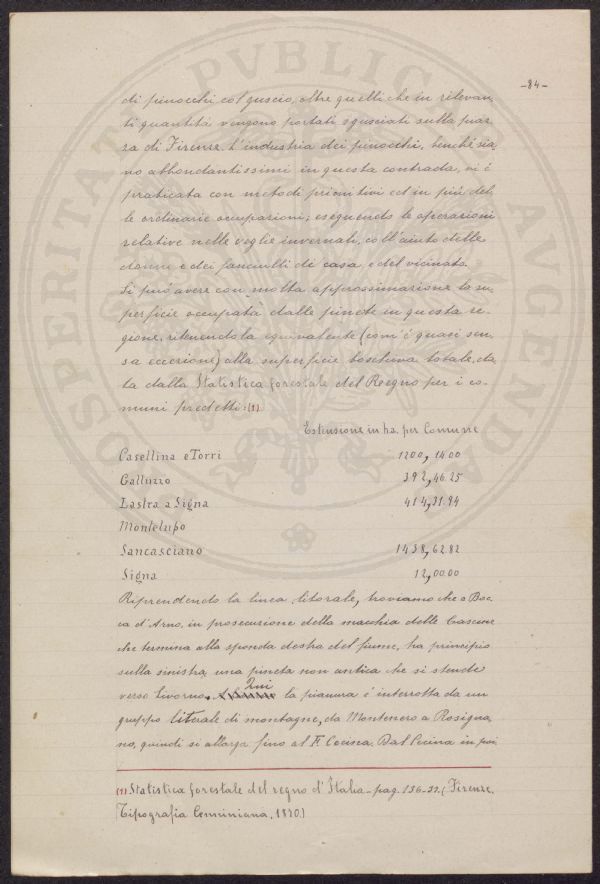 -84-
di pinocchi col guscio, oltre quelli che in rilevan
ti quantità vengono portati sgusciati sulla piaz
za di Firenze. L'industria dei pinocchi, benché sia
no abbondantissimi in questa contrada, vi è
praticata con metodi primitivi ed in più del
le ordinarie occupazioni; eseguendo le operazioni
relative nelle veglie invernali, coll'aiuto delle
donne e dei fanciulli di casa e del vicinato.
Si può avere con molta approssimazione la su
perficie occupata dalle pinete in questa re-
gione, ritenendola equivalente (com'è quasi sen
za eccezione) alla superficie boschiva totale, da
ta dalla Statistica forestale del Regno per i co-
muni predetti: (1)
Estensione in ha. per Comune
Casellina e Torri 1200,1400
Galluzzo 392,46.25
Lastra a Signa 414,31.94
Montelupo
Sancasciano 1438,62.82
Signa 12,00.00
Riprendendo la linea litorale, troviamo che a Boc
ca d'Arno, in prosecuzione della macchia delle Cascine
che termina alla sponda destra del fiume, ha principio
sulla sinistra una pineta non antica che si stende
verso Livorno. Qui la pianura è interrotta da un
gruppo litorale di montagne, da Montenero a Rosigna
no, quindi si allarga fino al F. Cecina. Dal Cecina in poi
(1) Statistica forestale del regno d'Italia - pag. 136-37. (Firenze.
Tipografia Cenniniana, 1870.)
PROSPERITATI PVBLICAE AVGENDAE